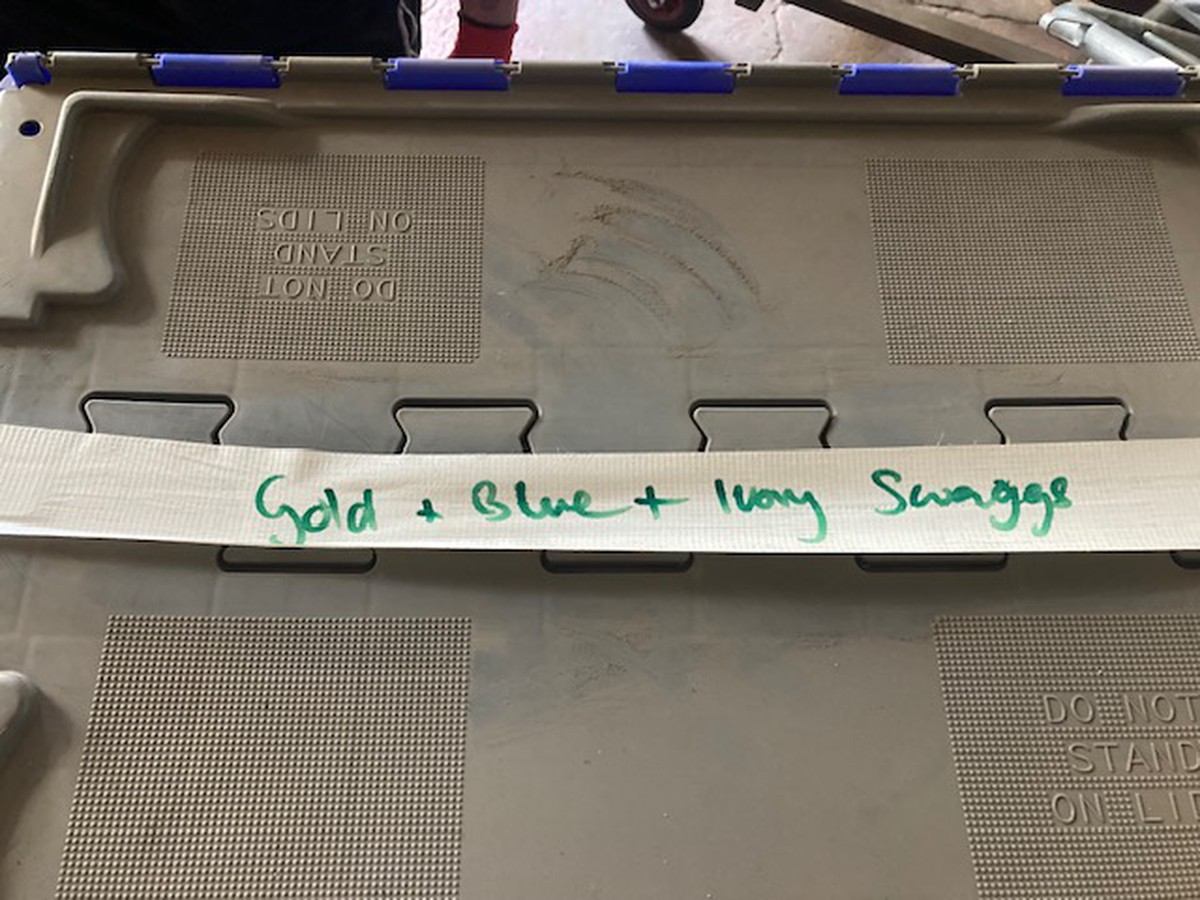 DO NOT
STAND
ON LIDS
Gold + Blue + Ivory Swaggs
DO NOT
STAND
ON LID